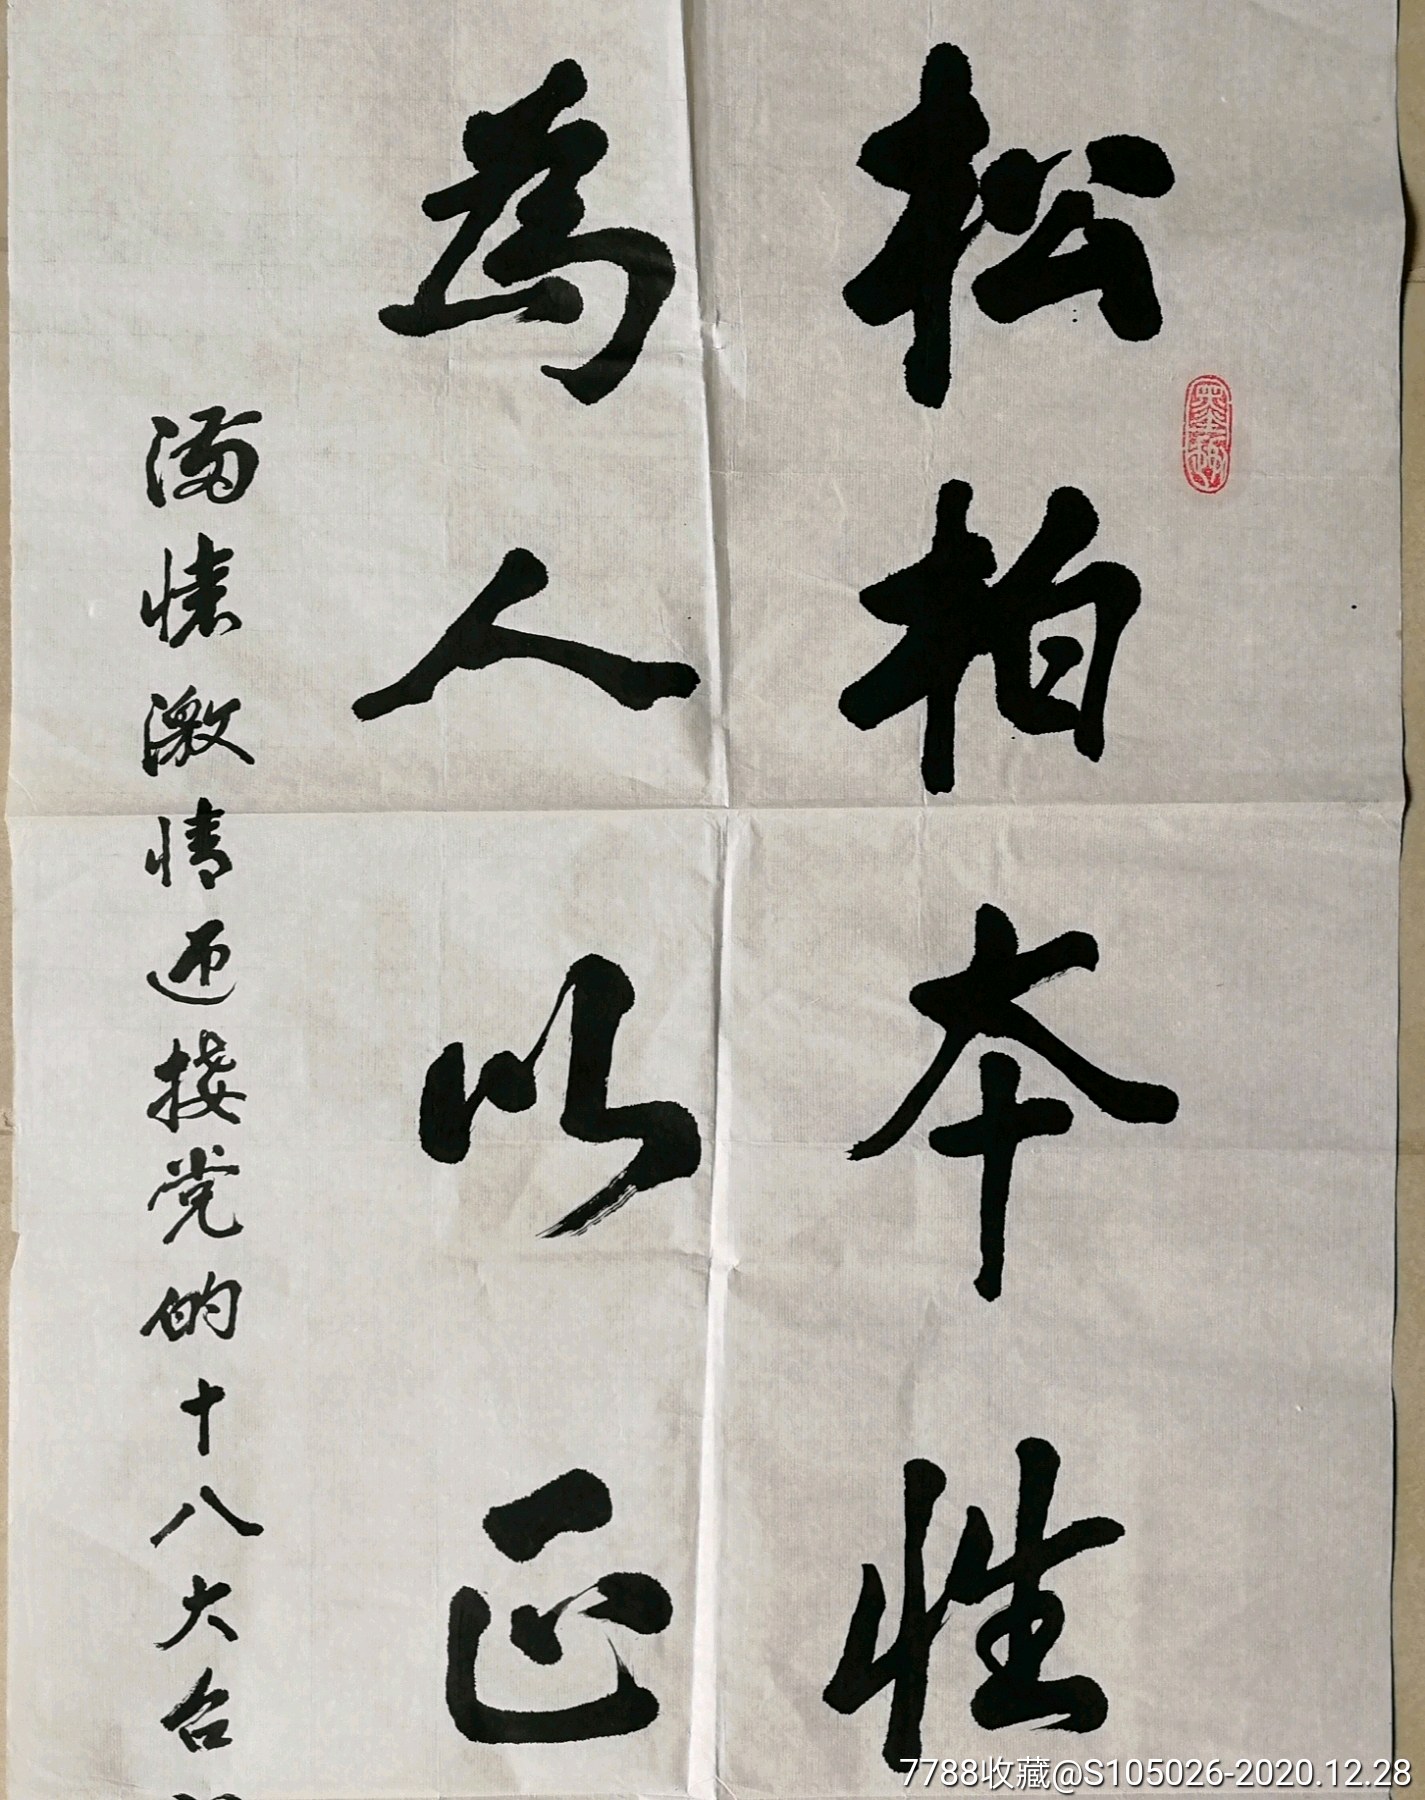 松柏本性
為人以正
满懷激情迎接党的十八大召
7788收藏@S105026-2020.12.28